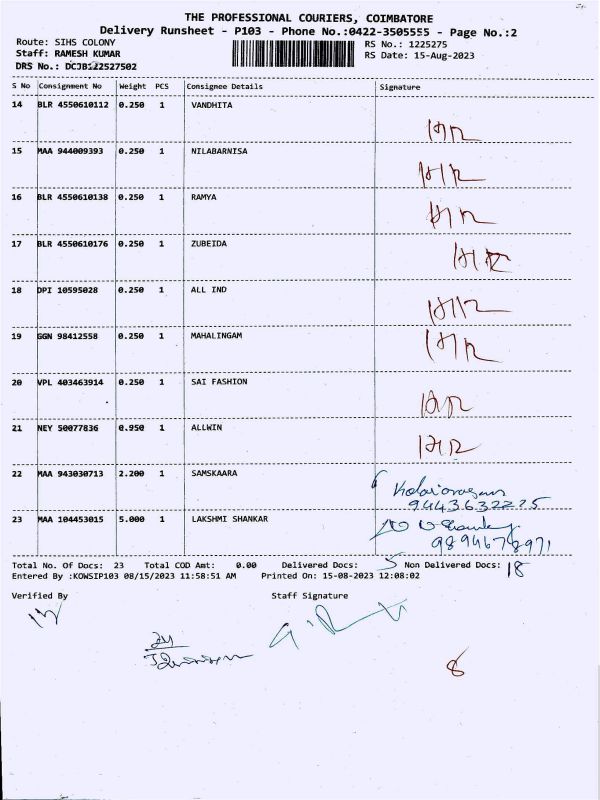 THE PROFESSIONAL COURIERS, COIMBATORE
Delivery Runsheet - P103 - Phone No.:0422-3505555 - Page No.:2
Route: SIHS COLONY RS No.: 1225275
Staff: RAMESH KUMAR RS Date: 15-Aug-2023
DRS No.:
S No Consignment No Weight PCS Consignee Details Signature
14 BLR 4550610112 0.250 1 VANDHITA
15 MAA 944009393 0.250 1 NILABARNISA
16 BLR 4550610138 0.250 1 RAMYA
17 BLR 4550610176 0.250 1 ZUBEIDA
18 DPI 10595028 0.250 1 ALL IND
19 GGN 98412558 0.250 1 MAHALINGAM
20 VPL 403463914 0.250 1 SAI FASHION
21 NEY 50077836 0.950 1 ALLWIN
22 MAA 943030713 2.200 1 SAMSKAARA
9443632275
23 MAA 104453015 5.000 1 LAKSHMI SHANKAR
9894678971
Total No. Of Docs: 23 Total COD Amt: 0.00 Delivered Docs: 5 Non Delivered Docs: 18
Entered By :KOWSIP103 08/15/2023 11:58:51 AM Printed On: 15-08-2023 12:08:02
Verified By Staff Signature
8